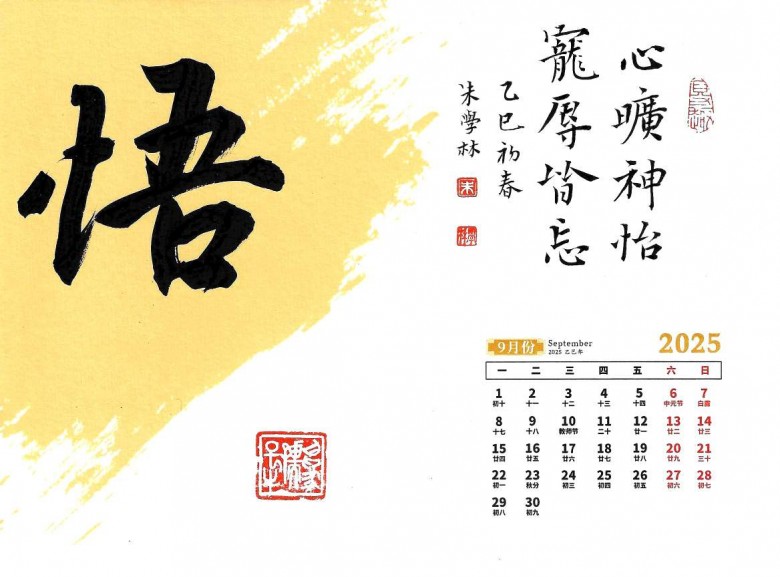 悟
心曠神怡
寵辱皆忘
乙巳初春
朱學林
朱
9月份 September 2025
2025 乙巳年
一 二 三 四 五 六 日
1 2 3 4 5 6 7
初十 十一 十二 十三 十四 中元节 白露
8 9 10 11 12 13 14
十七 十八 教师节 二十 廿一 廿二 廿三
15 16 17 18 19 20 21
廿四 廿五 廿六 廿七 廿八 廿九 三十
22 23 24 25 26 27 28
初一 秋分 初三 初四 初五 初六 初七
29 30
初八 初九